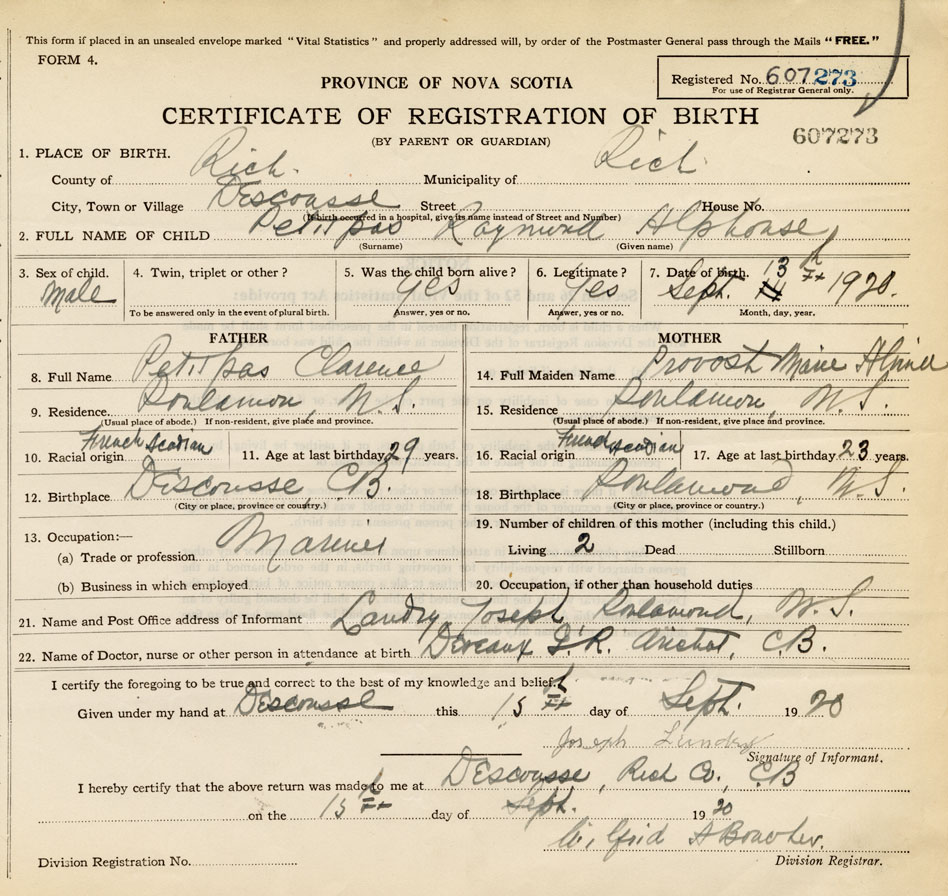 This form if placed in an unsealed envelope marked "Vital Statistics" and properly addressed will, by order of the Postmaster General pass through the Mails "FREE."
FORM 4.
Registered No. 607273
For use of Registrar General only.
PROVINCE OF NOVA SCOTIA
CERTIFICATE OF REGISTRATION OF BIRTH
607273
(BY PARENT OR GUARDIAN)
1. PLACE OF BIRTH.
County of Rich. Municipality of Rich.
City, Town or Village Descousse Street House No.
(If birth occurred in a hospital, give its name instead of Street and Number)
2. FULL NAME OF CHILD Petitpas Raymond Alphonse
(Surname) (Given name)
3. Sex of child. Male
4. Twin, triplet or other?
To be answered only in the event of plural birth.
5. Was the child born alive? Yes
Answer, yes or no.
6. Legitimate? Yes
Answer, yes or no.
7. Date of birth. Sept. 13th 1920.
Month, day, year.
FATHER
8. Full Name Petitpas Clarence
9. Residence Poulamon, N.S.
(Usual place of abode.) If non-resident, give place and province.
10. Racial origin French Acadian 11. Age at last birthday 29 years.
12. Birthplace Discousse, C.B.
(City or place, province or country.)
13. Occupation:—
(a) Trade or profession Mariner
(b) Business in which employed
MOTHER
14. Full Maiden Name Provost Marie
15. Residence Poulamon, N.S.
(Usual place of abode.) If non-resident, give place and province.
16. Racial origin French Acadian 17. Age at last birthday 23 years.
18. Birthplace Poulamond, N.S.
(City or place, province or country.)
19. Number of children of this mother (including this child.)
Living 2 Dead Stillborn
20. Occupation, if other than household duties
21. Name and Post Office address of Informant Landry Joseph, Poulamond, N.S.
22. Name of Doctor, nurse or other person in attendance at birth Deveaux Arichat, C.B.
I certify the foregoing to be true and correct to the best of my knowledge and belief.
Given under my hand at Descousse this 15th day of Sept. 1920
Joseph Landry
Signature of Informant.
I hereby certify that the above return was made to me at Descousse, Rich Co., C.B
on the 15th day of Sept. 1920
Wilfrid A Boucher.
Division Registration No. Division Registrar.